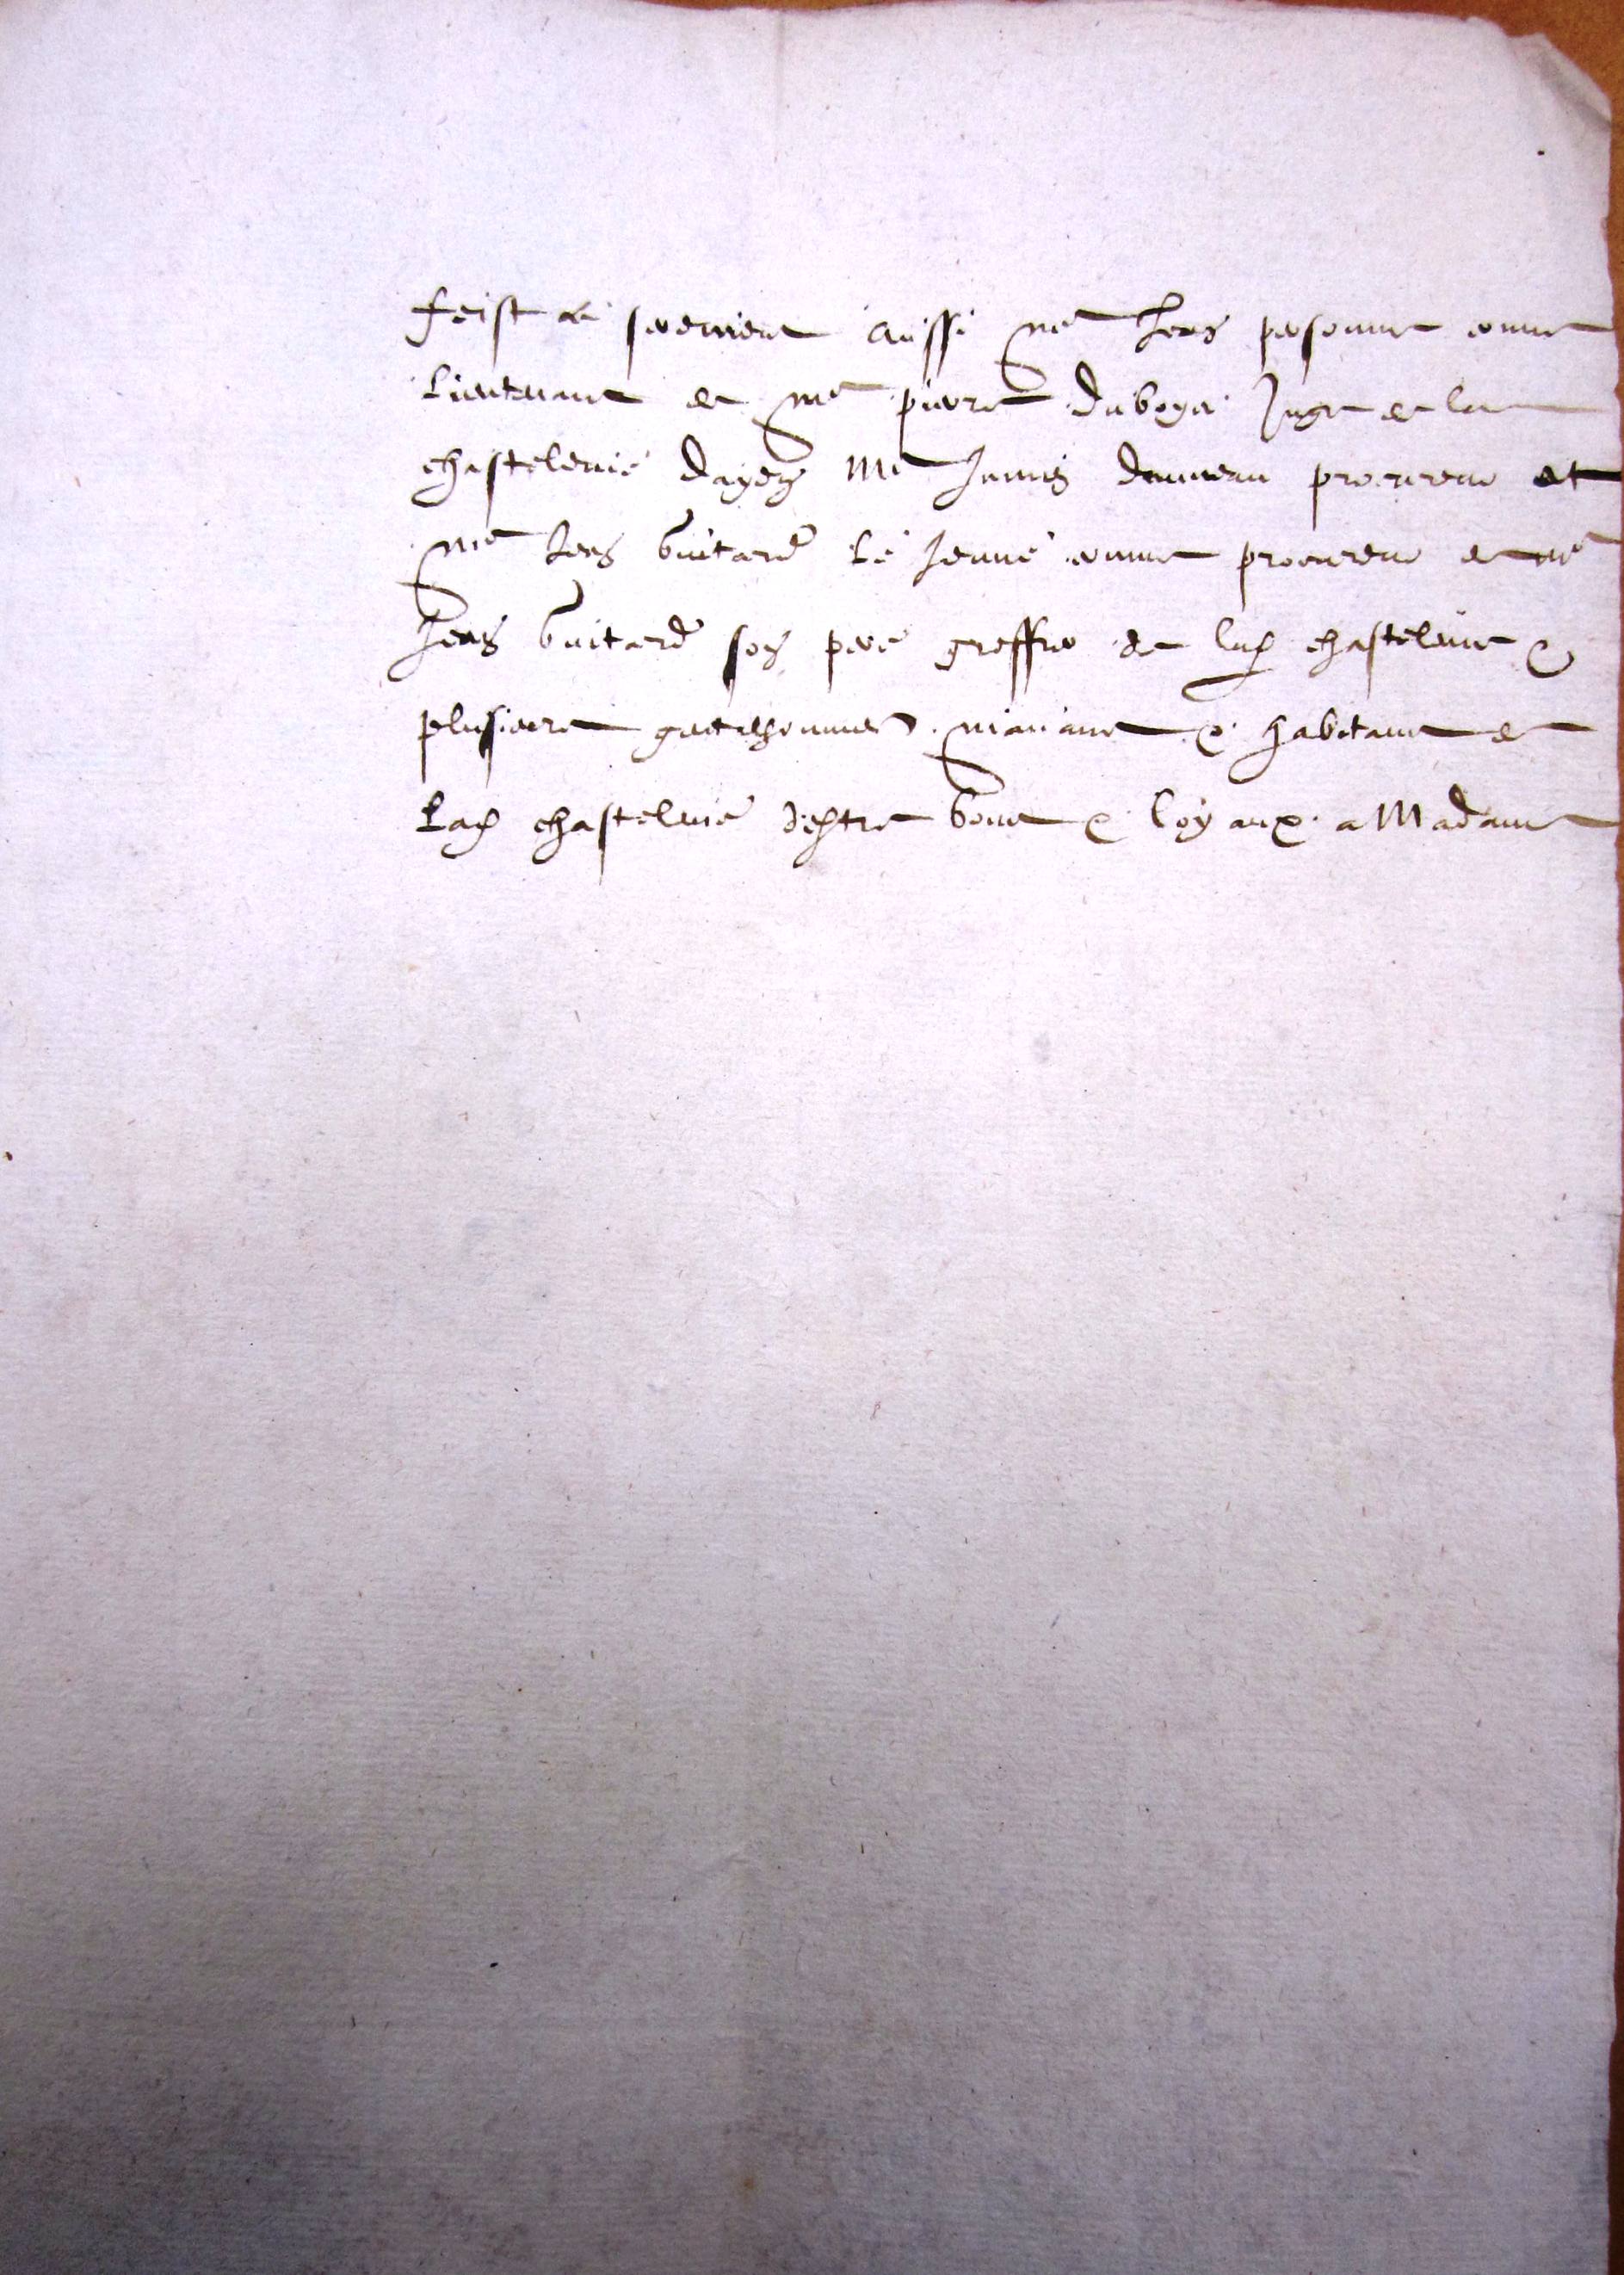 feist le serement aussi me Jean personne comme
lieutenant et me pierre duboys Juge de la
chastelenie dayen me Jannis dauveau procureur et
me Jean Guitard le Jeune comme procureur de me
Jean Guitard son pere greffier de lad chastelenie &
plusieurs gentilshommes manans & habitans de
lad chastelenie destre bons & loyaux a Madame